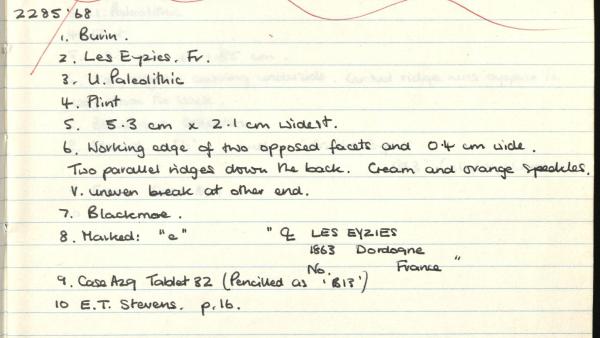 2285'68
1. Burin.
2. Les Eyzies. Fr.
3. U. Paleolithic
4. Flint
5. 5.3 cm x 2.1 cm widest.
6. Working edge of two opposed facets and 0.4 cm wide.
Two parallel ridges down the back. Cream and orange speckles.
V. uneven break at other end.
7. Blackmore.
8. Marked: "e" " LES EYZIES
1863 Dordogne
No. France "
9. Case A29 Tablet 32 (Pencilled as 'B13')
10 E.T. Stevens. p.16.